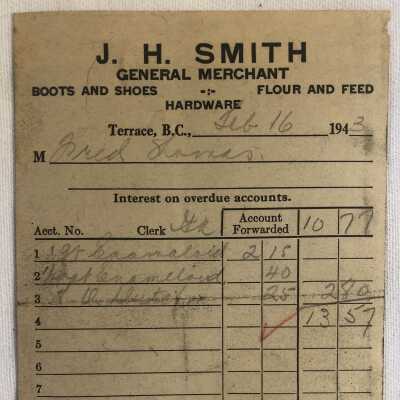 J. H. SMITH
GENERAL MERCHANT
BOOTS AND SHOES -:- FLOUR AND FEED
HARDWARE
Terrace, B.C., Feb 16 1943
M Fred
Interest on overdue accounts.
Acct. No. Clerk Account Forwarded 10 77
1 2 15
2 40
3 25 2 80
4 13 57
5
6
7